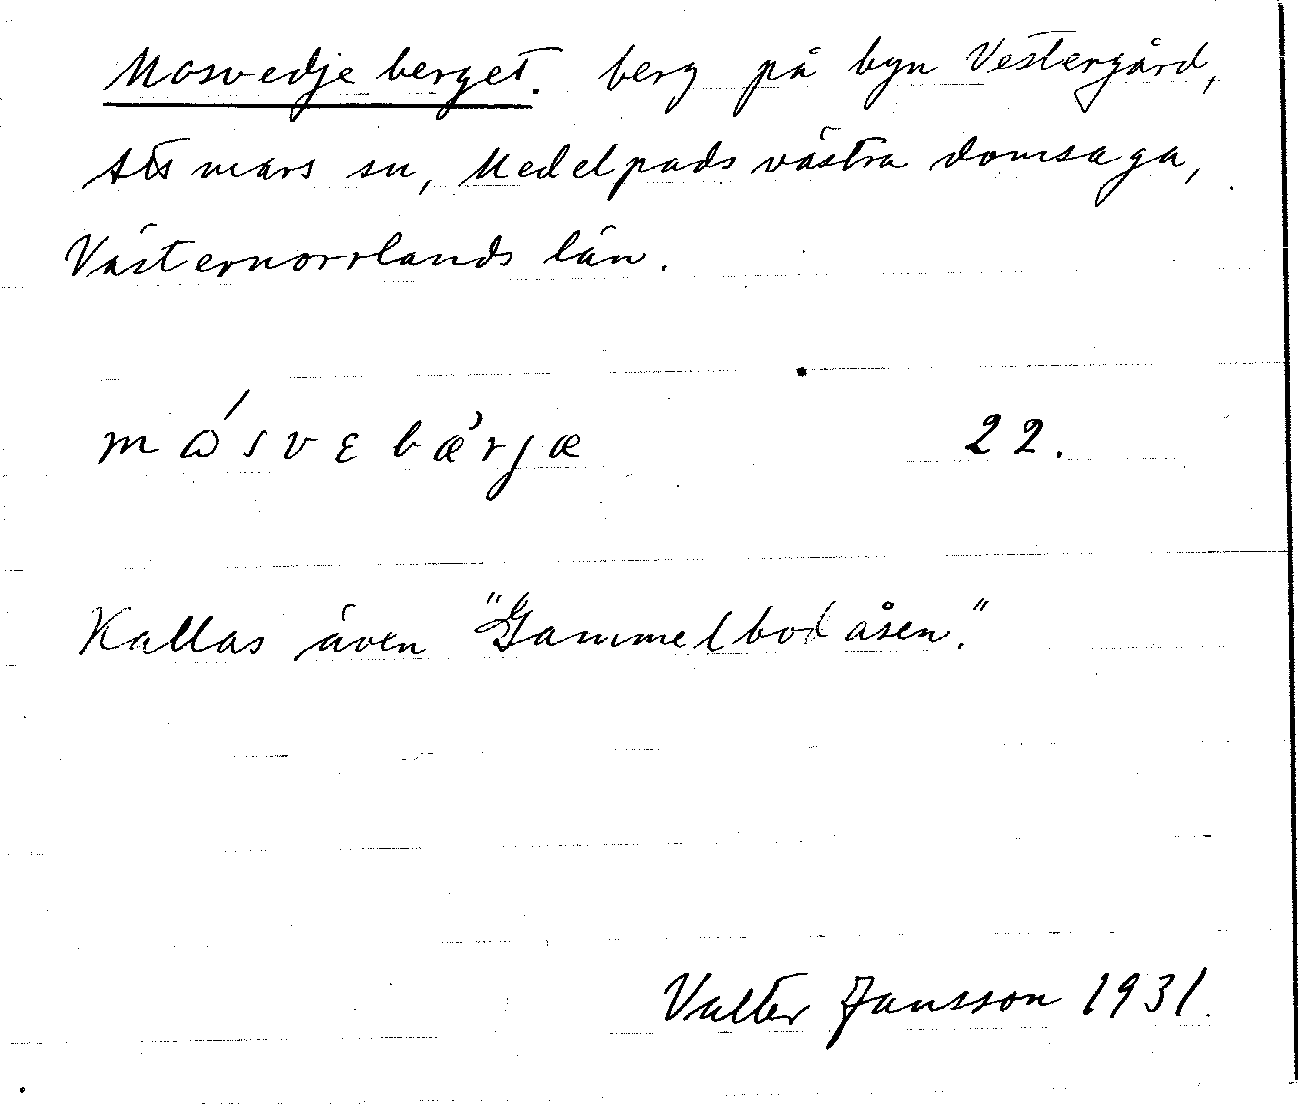 Mosvedjeberget. berg på byn Vestergård,
Attmars sn, Medelpads västra domsaga,
Västernorrlands län.
mɷ́svɛbæ̀rjæ 22.
Kallas även "Gammelbodåsen."
Valter Jansson 1931.